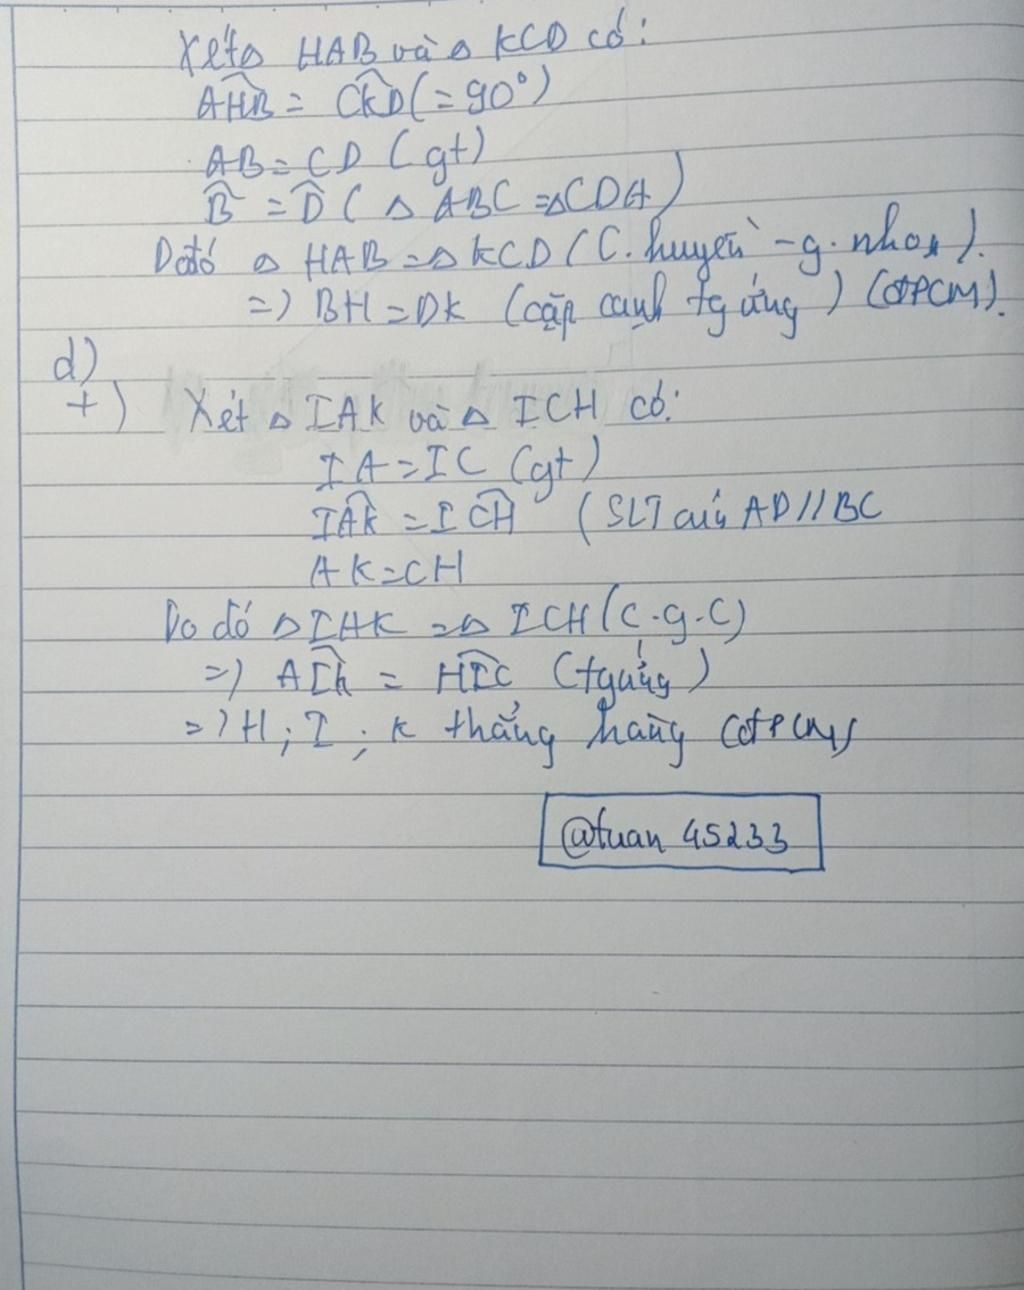 Xét Δ HAB và Δ KCD có:
AHB = CKD (= 90°)
AB = CD (gt)
B = D ( Δ ABC = Δ CDA )
Do đó Δ HAB = Δ KCD (C. huyền - g. nhọn ).
=) BH = DK (cặp cạnh tg ứng ) (ĐPCM).
d)
+) Xét Δ IAK và Δ ICH có:
IA = IC (gt)
IAK = ICH ( SLT của AD // BC
AK = CH
Do đó Δ IAK = Δ ICH (C.g.C)
=) AIK = HIC (tg ứng )
=) H ; I ; K thẳng hàng (đPCM)
@tuan 45233